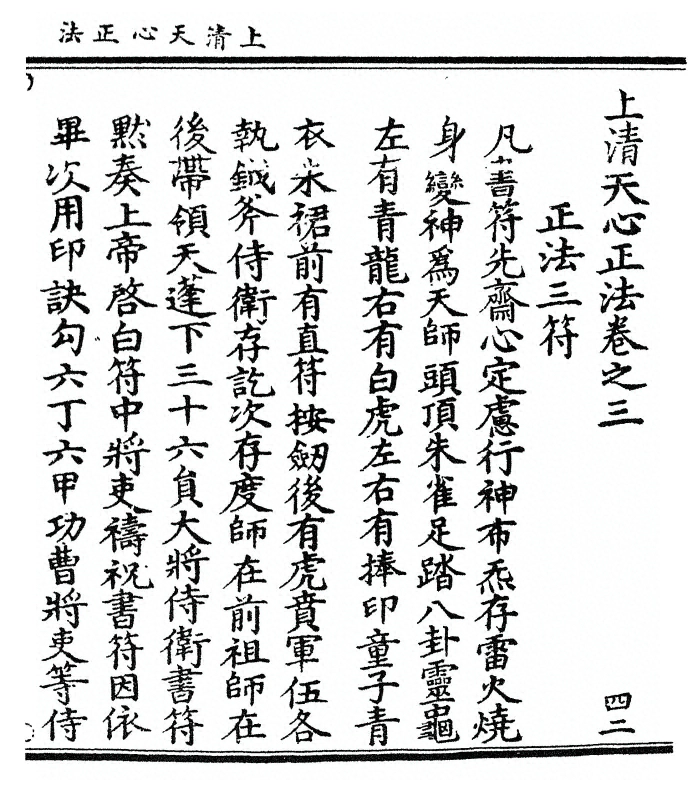 上清天心正法
上清天心正法卷之三
四二
正法三符
凡書符先齋心定慮行神布炁存雷火燒
身變神為天師頭頂朱雀足踏八卦靈龜
左有青龍右有白虎左右有捧印童子青
衣朱裙前有直符按劒後有虎賁軍伍各
執鉞斧侍衛存訖次存度師在前祖師在
後帶領天蓬下三十六員大將侍衛書符
黙奏上帝啓白符中將吏禱祝書符因依
畢次用印訣勾六丁六甲功曹將吏等侍